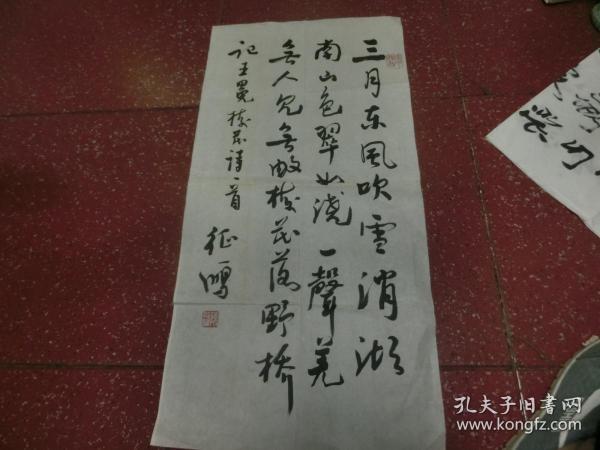 三月东风吹雪消湖
南山色翠如浇一聲羌
無人见無數梅花落野桥
记王冕梅花诗一首
征鸿
孔夫子旧书网
www.kongfz.com